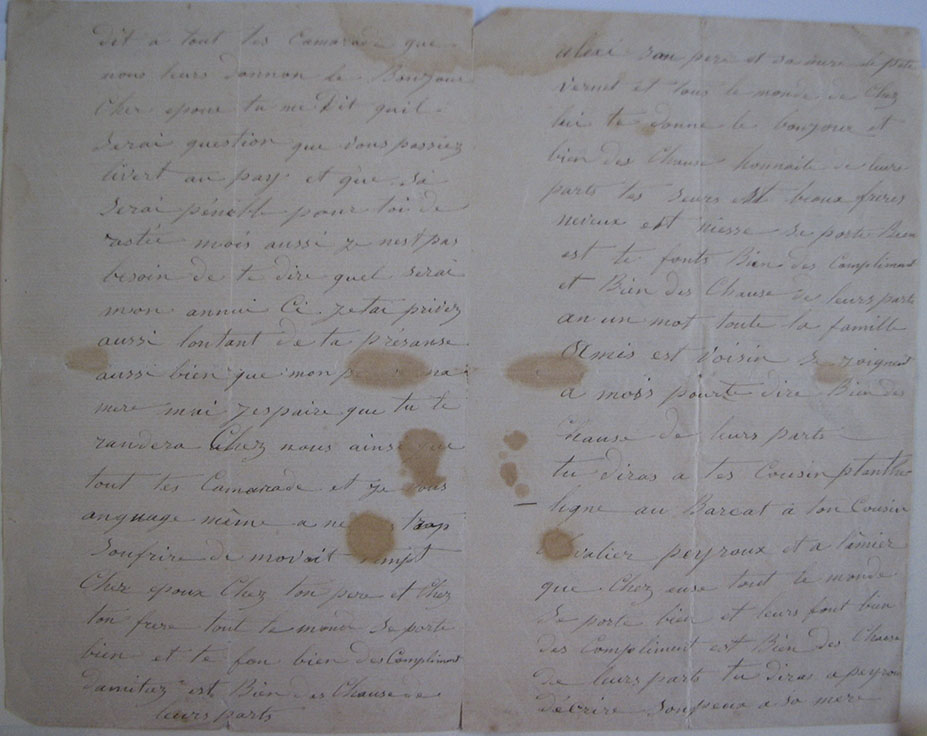 dit a tout tes Camarade que
nous leurs donnon le Bonjour
Cher epoux tu me Dit quil
serai question que vous passiez
livert au pay et que sa
serai pénible pour toi de
rastée mois aussi je nest pas
besoin de te dire quel serai
mon annui Ci jetai privez
aussi lontant de ta présanse
aussi bien que mon
mere mai jespaire que tu te
randera Chez nous ainsi que
tout tes Camarade et je vous
anguage même a ne trop
soufrire de movait
Cher epoux Chez ton pere et Chez
ton frere tout le monde se porte
bien et te fon bien des Compliment
damitiez est Bien des Chause de
leurs parts
alexi son pere et sa mere de
vernet et tous le monde de Chez
lui te donne le bonjour et
bien des Chause honnaite de leurs
parts tes seurs est beaux freres
neveux est niesse se porte Bien
est te fonts Bien des Compliment
et Bien des Chause de leurs parts
an un mot toute la famille
Amis est voisin se joignent
a mois pour te dire Bien des
Chause de leurs parts
tu diras a tes Cousin
ligne au Barcat à ton Cousin
peyroux et a
que Chez euse tout le monde
se porte bien et leurs font bien
des Compliment est Bien des Chause
de leurs parts tu diras a peyrou
décrire a sa mere